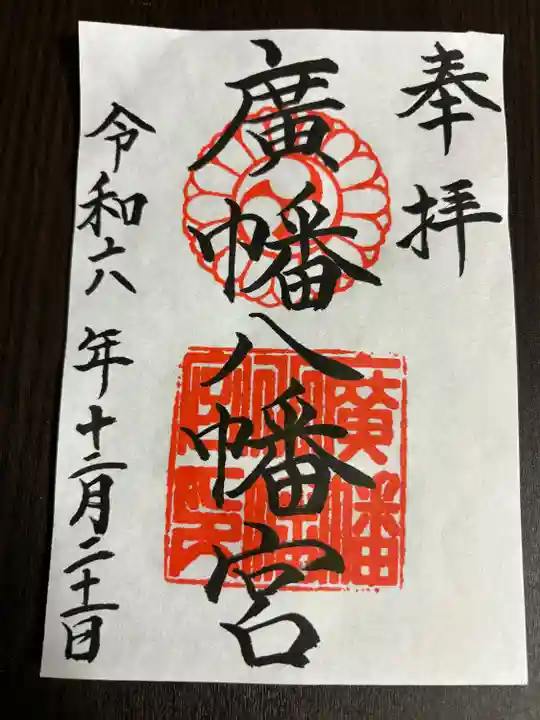 奉拝
廣幡八幡宮
廣幡
令和六年十二月二十一日